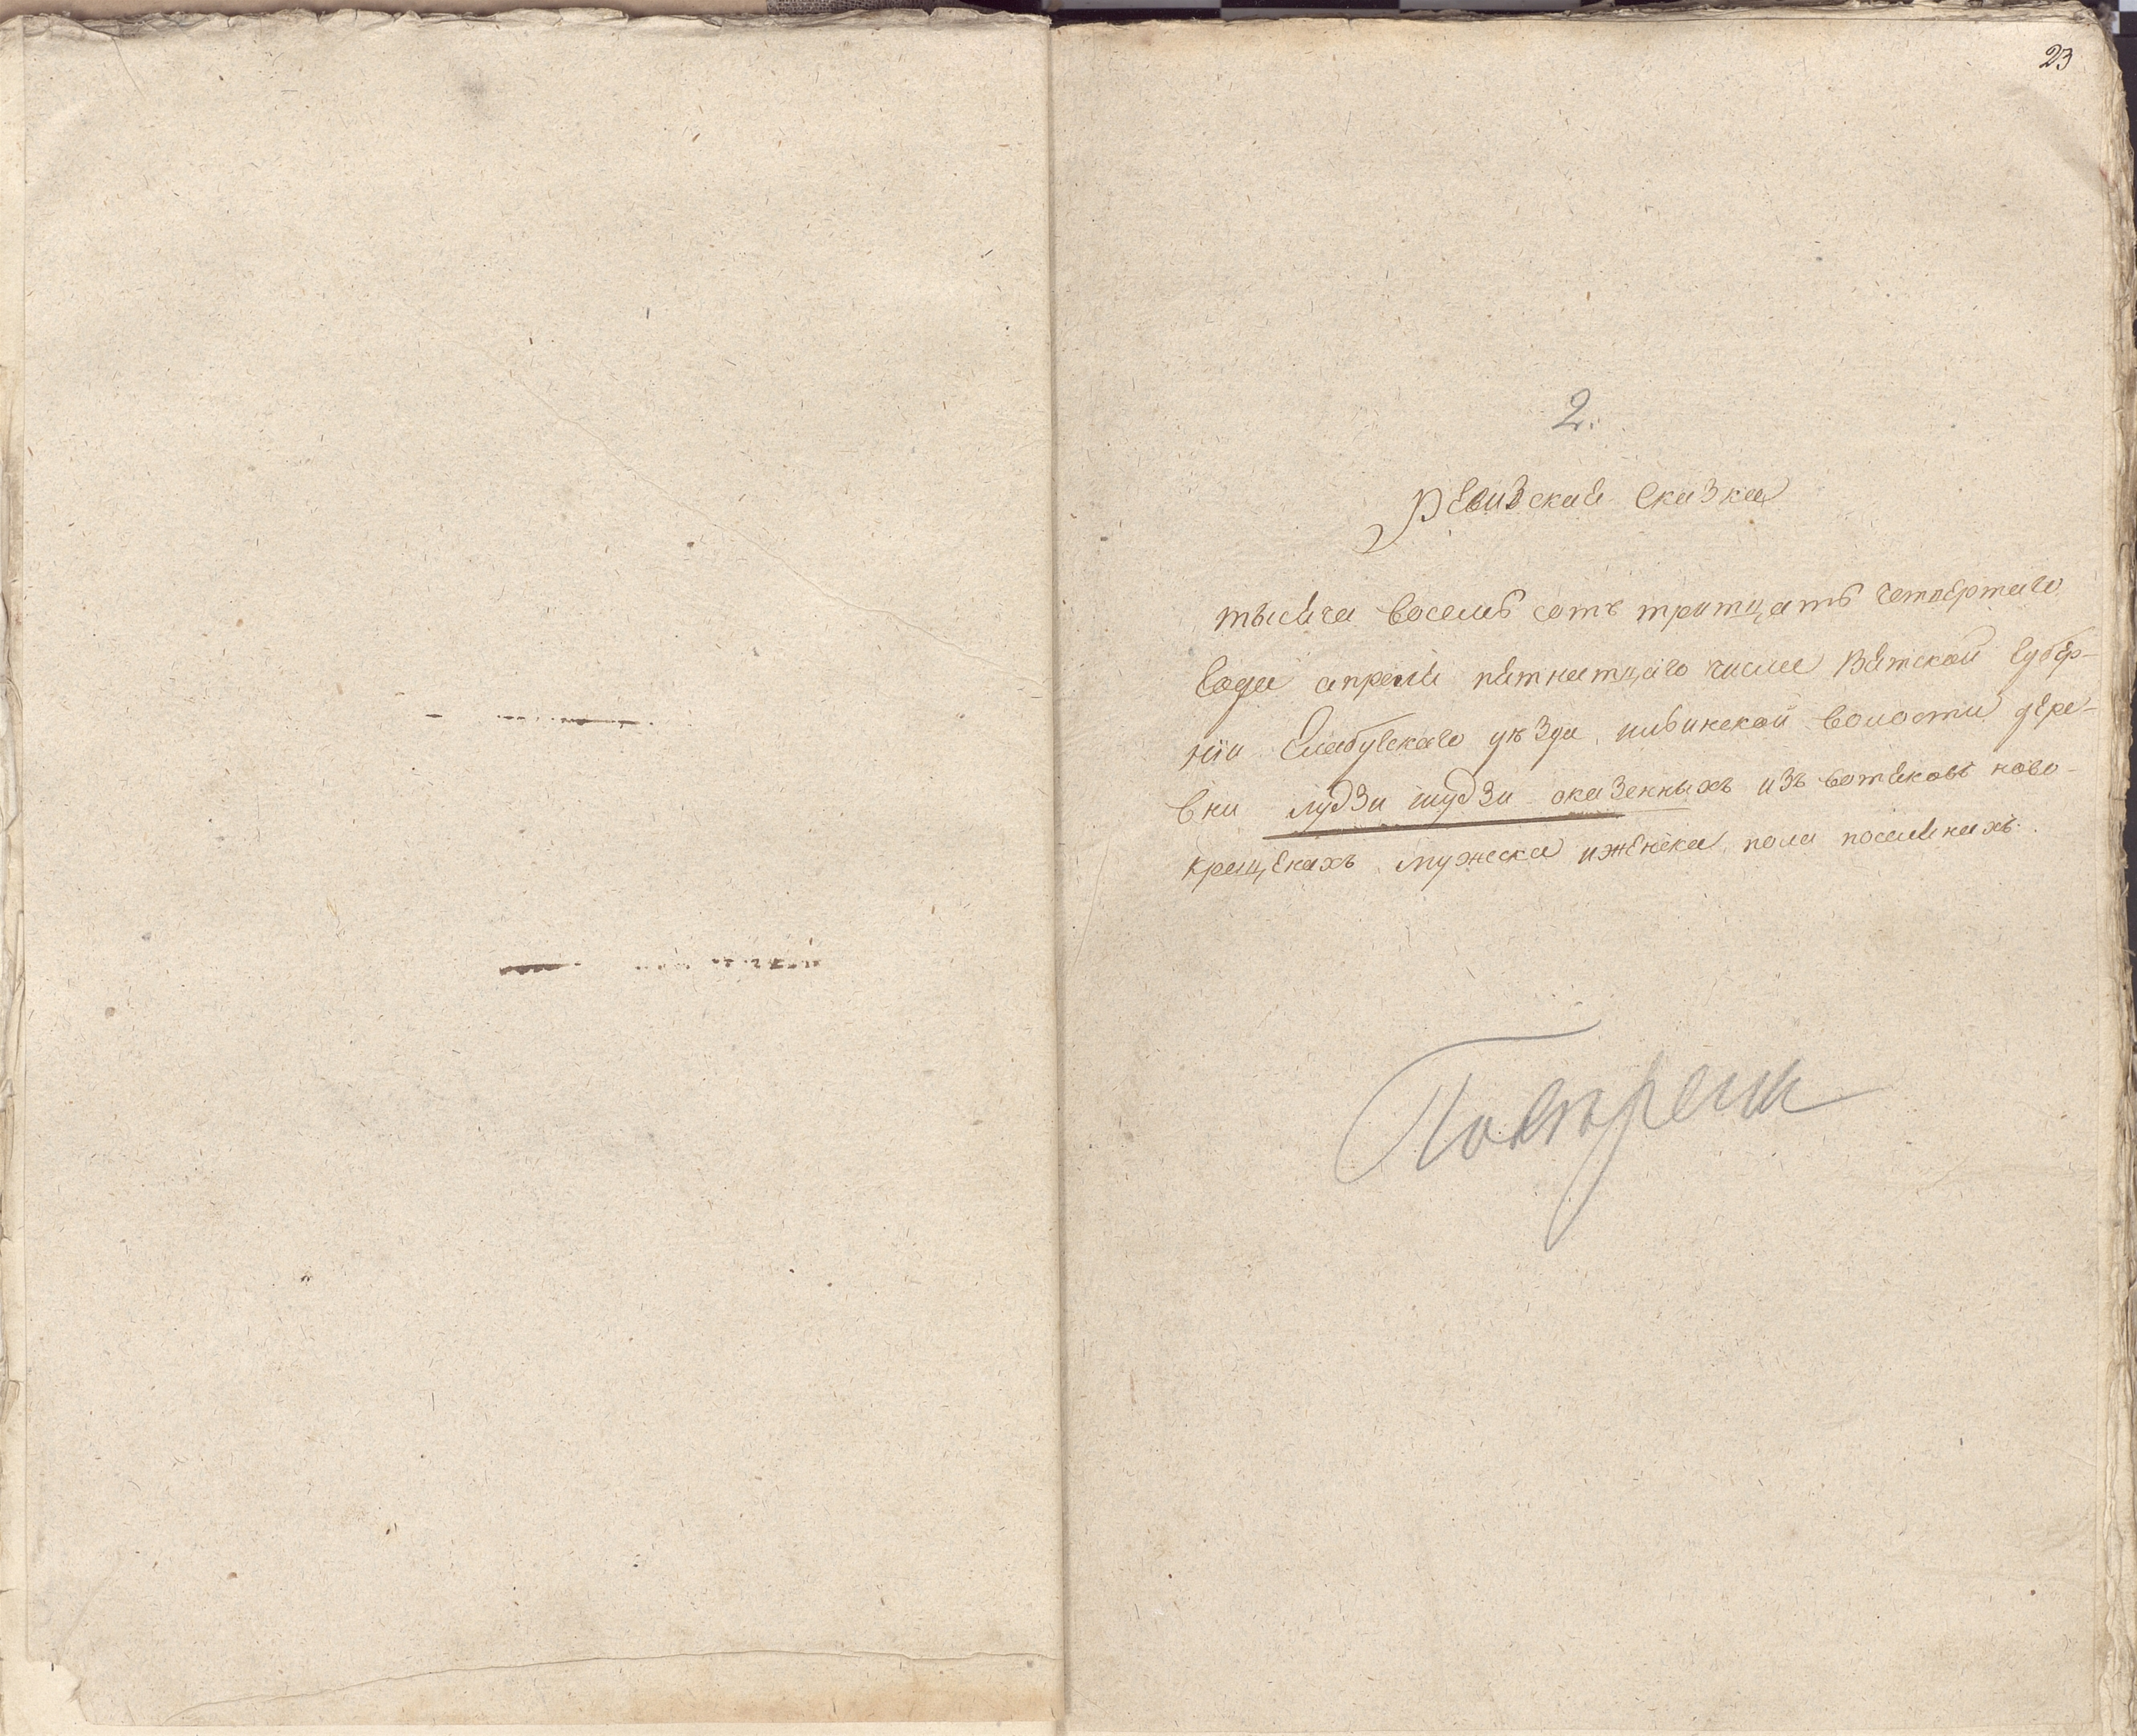 23
2.
Ревизская сказка
тысяча восемь сотъ тритцать четвертаго
года апреля пятнатцаго числа Вятской губер-
нiи Елабугскаго уѣзда, ильинской волости дере-
вни лудзи шудзи оказенныхъ изъ вотяковъ ново-
крещенахъ мужеска иженска пола поселянахъ.